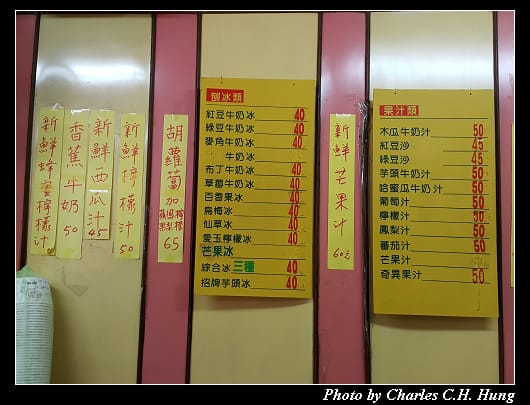 新鮮蜂蜜檸檬汁
香蕉牛奶 50
新鮮西瓜汁 45
新鮮檸檬汁 50
胡蘿蔔加
65
刨冰類
紅豆牛奶冰 40
綠豆牛奶冰 40
麥角牛奶冰 40
牛奶冰
布丁牛奶冰 40
草莓牛奶冰 40
百香果冰 40
烏梅冰 40
仙草冰 40
愛玉檸檬冰 40
芒果冰
綜合冰三種 40
招牌芋頭冰 40
新鮮芒果汁 60元
果汁類
木瓜牛奶汁 50
紅豆沙 45
綠豆沙 45
芋頭牛奶汁 50
哈蜜瓜牛奶汁 50
葡萄汁 50
檸檬汁 50
鳳梨汁 50
蕃茄汁 50
芒果汁
奇異果汁 50
Photo by Charles C.H. Hung